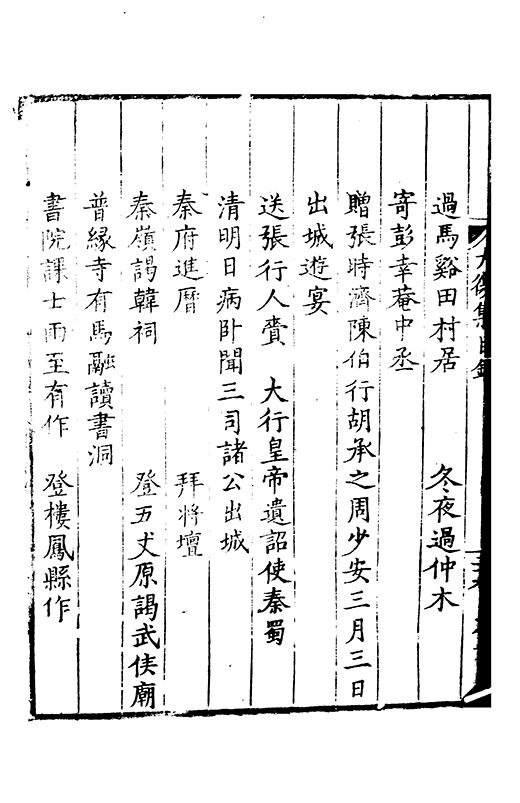 過馬谿田村居　冬夜過仲木
寄彭幸菴中丞
贈張時濟陳伯行胡承之周少安三月三日
出城遊宴
送張行人賫　大行皇帝遺詔使秦蜀
清明日病卧聞三司諸公出城
秦府進曆　拜將壇
秦嶺謁韓祠　登五丈原謁武侯廟
普緣寺有馬融讀書洞
書院課士雨至有作　登樓鳳縣作